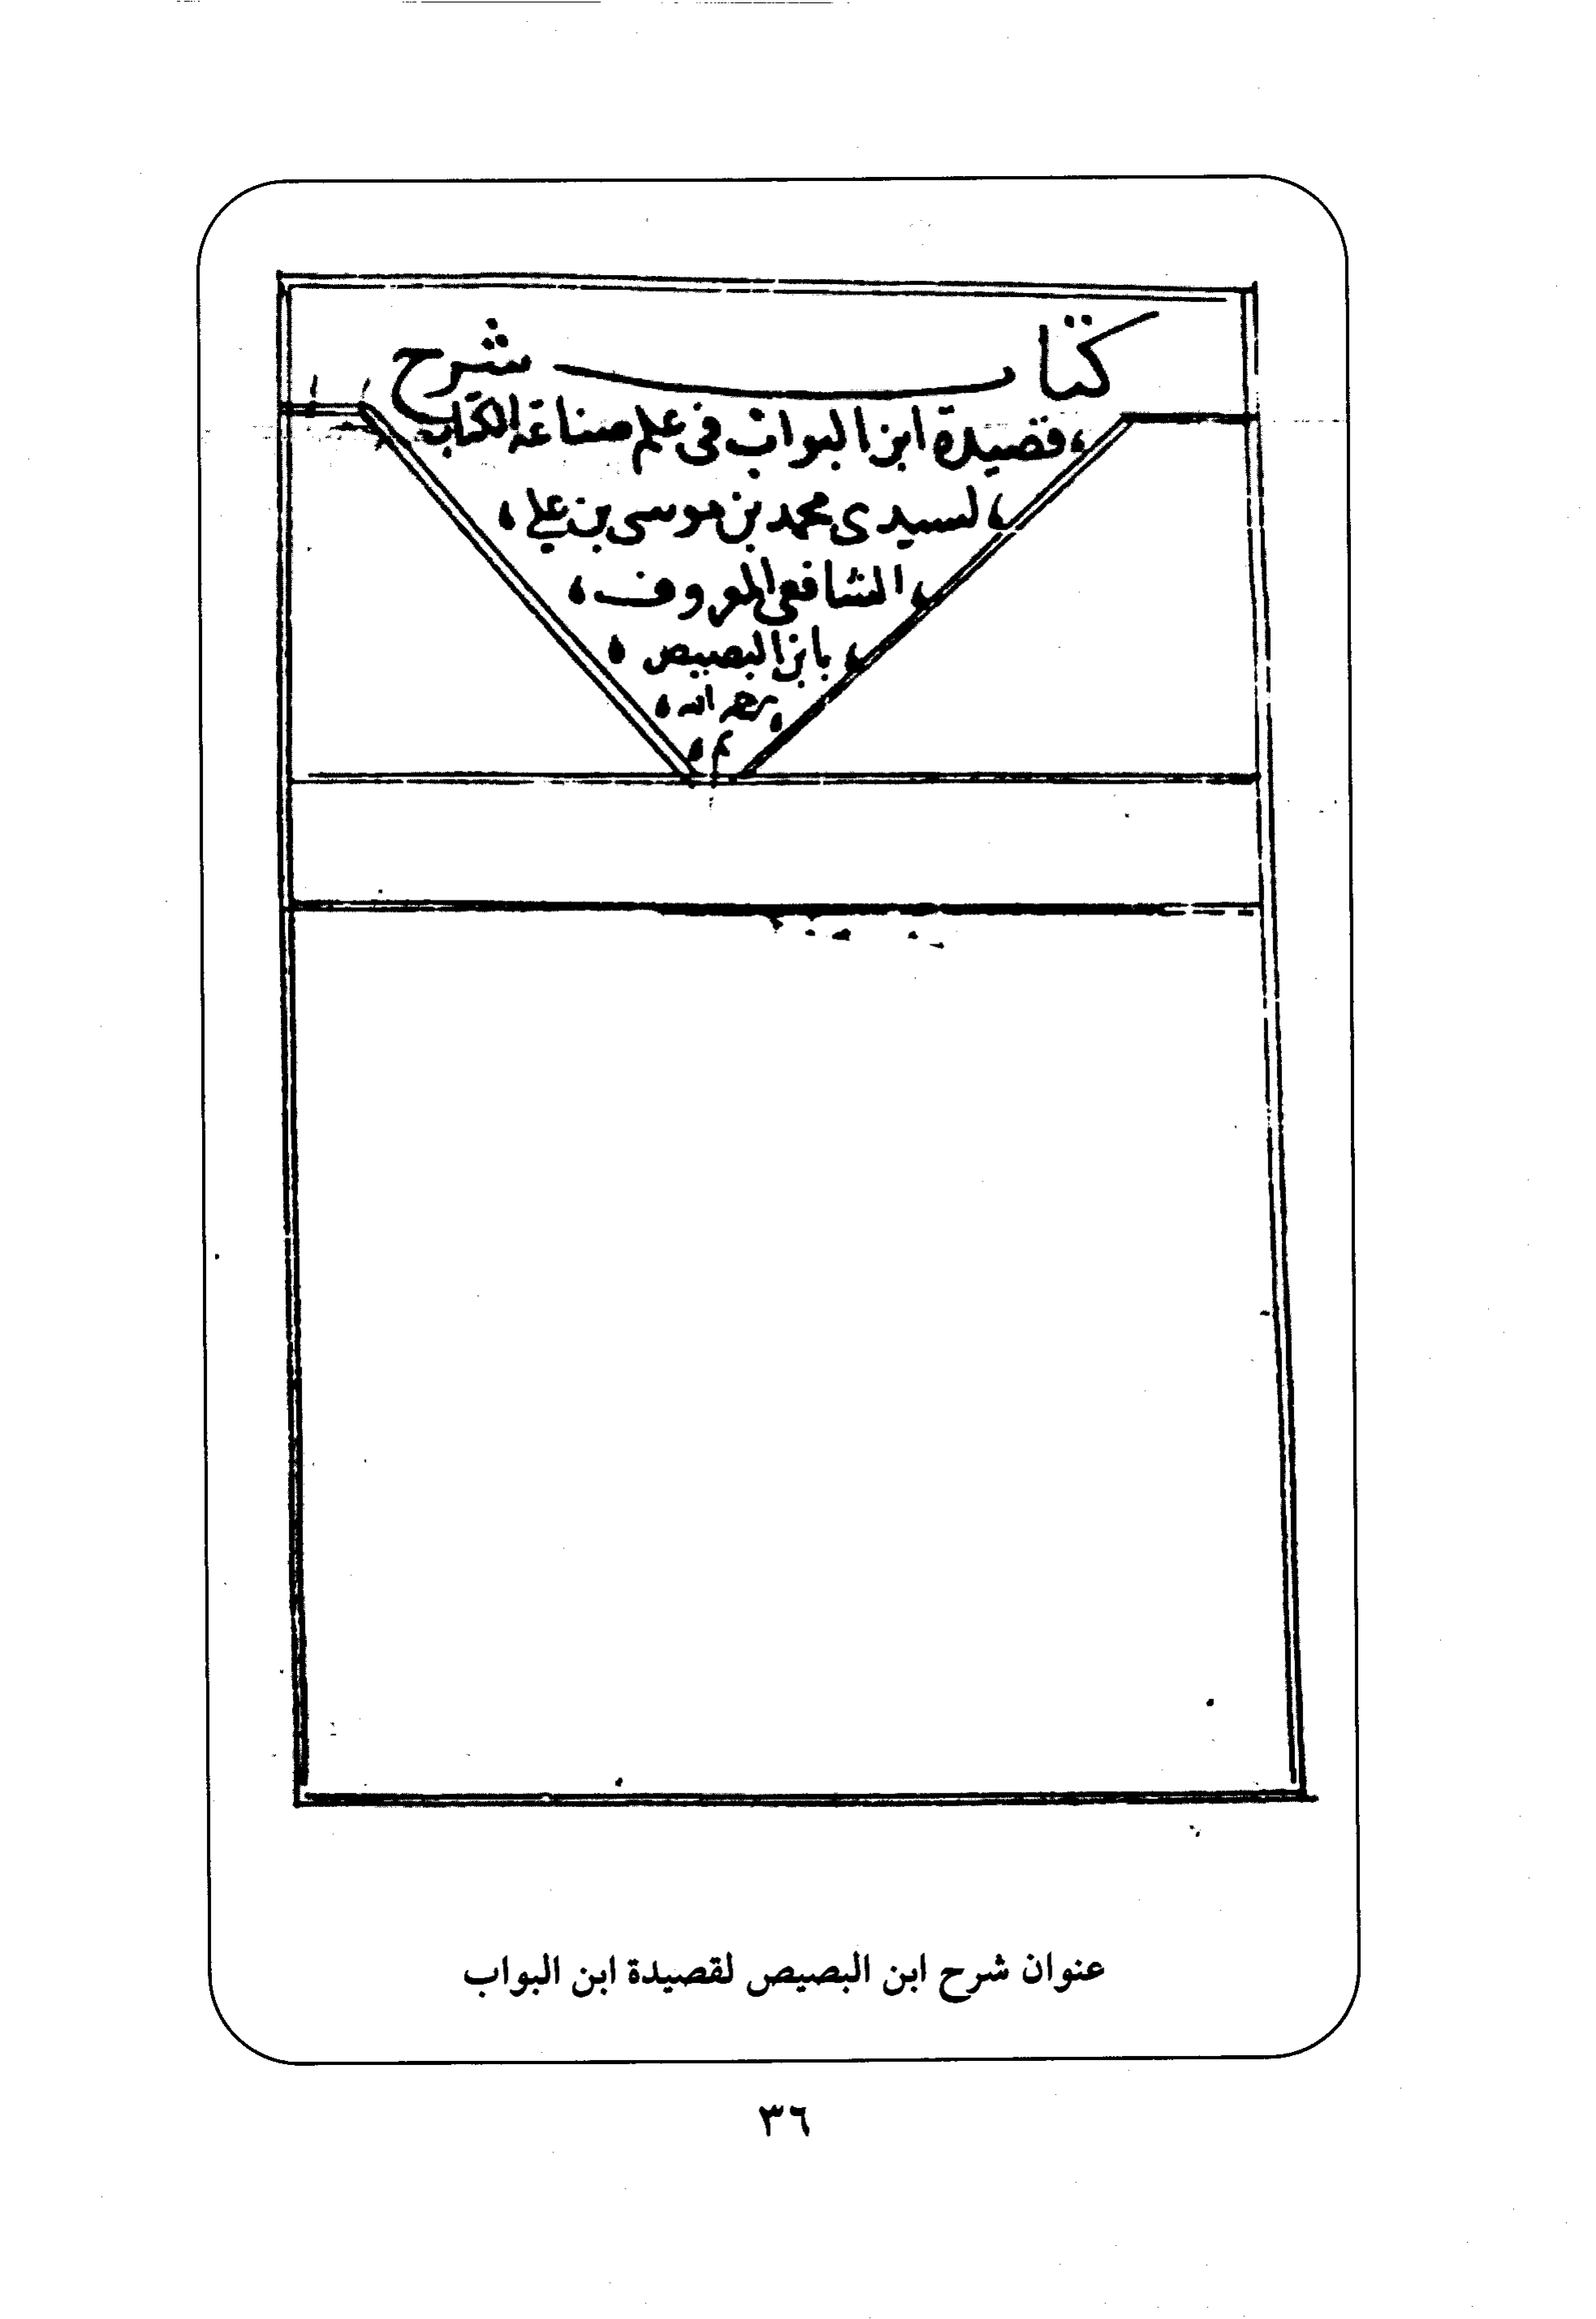 كتاب شرح
قصيدة ابن البواب في علم صناعة الكتاب
لسيدي محمد بن موسى بن علي
الشافعي المعروف
بابن البصيص
رحمه الله
م
عنوان شرح ابن البصيص لقصيدة ابن البواب
٣٦